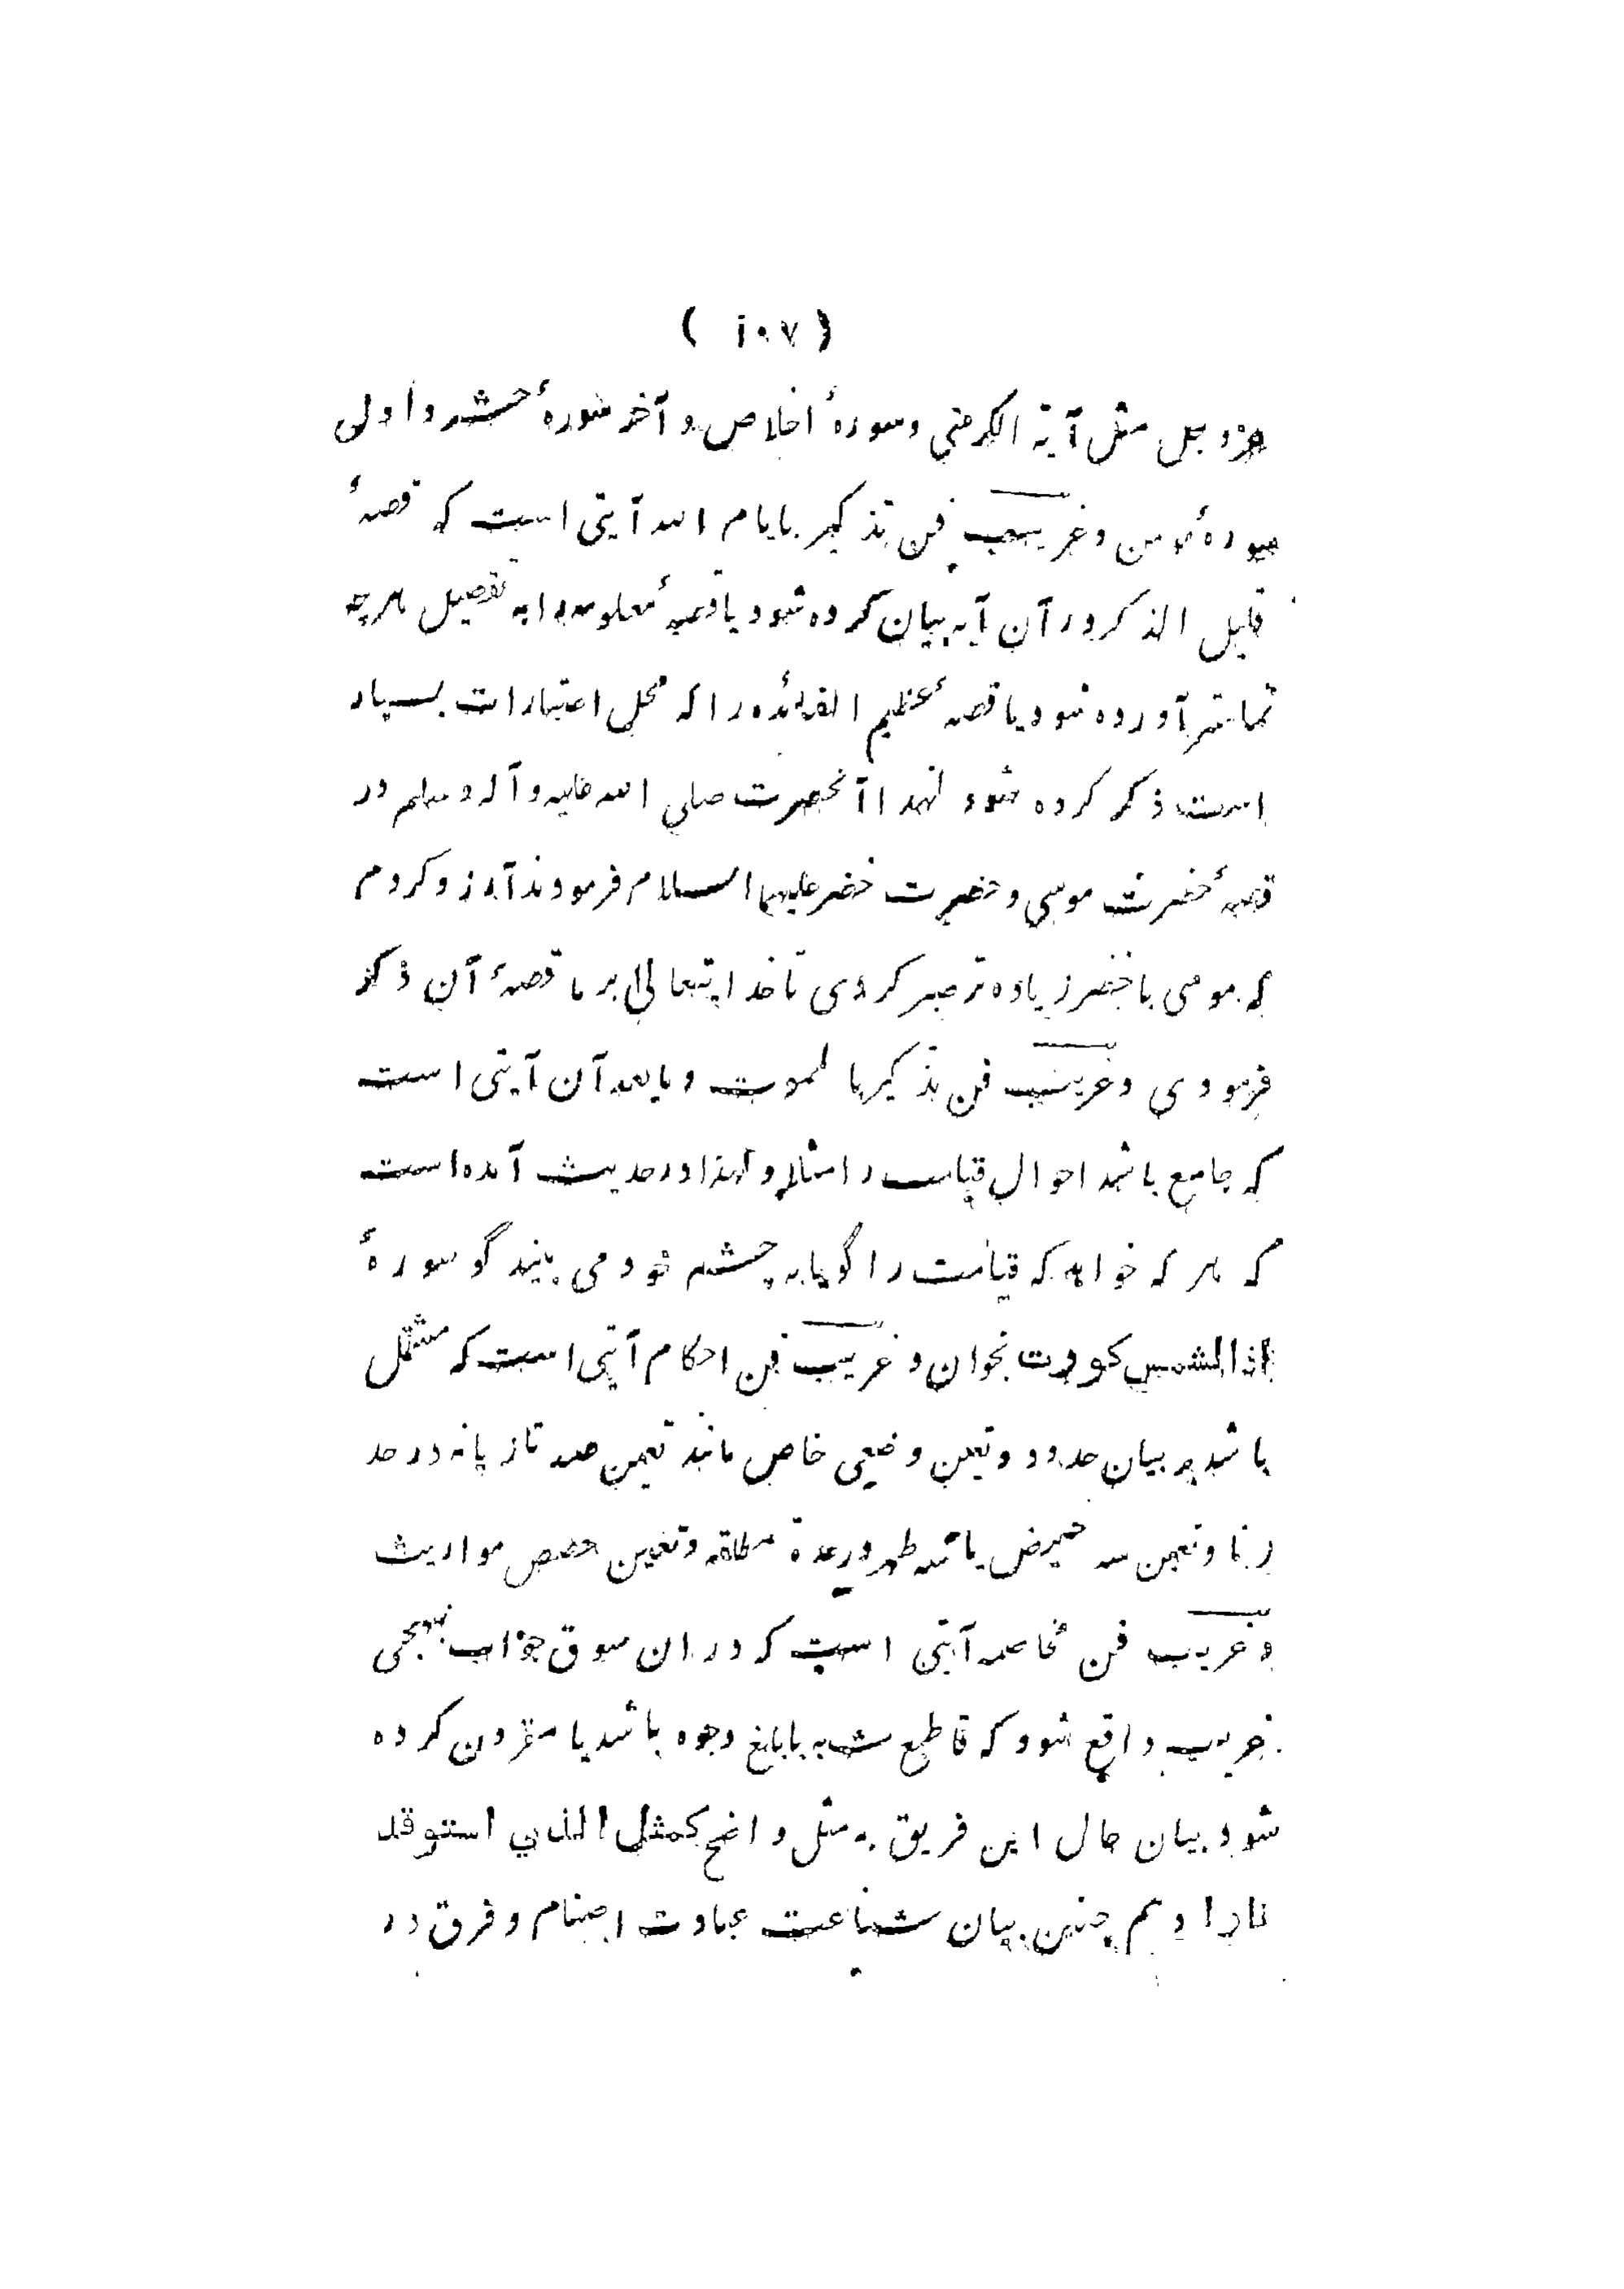 ( ۱۰۷ )
عزوجل مثل آیة الکرسی وسورهٔ اخلاص و آخر سورهٔ حشر و اولی
سورهٔ مومن و غریب فن تذکیر بایام الله آیتی است که قصهٔ
قلیل الذکر در آن آیه بیان کرده شود یا قصهٔ معلومه را به تفصیل هرچه
تمامتر آورده شود یا قصهٔ عظیم الفائده را که محل اعتبارات بسیار
است ذکر کرده شود لهذا آنحضرت صلی الله علیه و آله و سلم در
قصهٔ حضرت موسی و حضرت خضر علیهما السلام فرمودند آرزو کردم
که موسی با خضر زیاده تر صبر کردی تا خدایتعالی بر ما قصهٔ آن ذکر
فرمودی و غریب فن تذکیر با لموت و ما بعد آن آیتی است
که جامع باشد احوال قیامت را مثلا و لهذا در حدیث آمده است
که هر که خواهد که قیامت را گویا به چشم خود می بیند گو سورهٔ
اذا الشمس کورت بخوان و غریب فن احکام آیتی است که مشتمل
باشد بر بیان حدود و تعین وضعی خاص مانند تعین صد تازیانه در حد
زنا و تعین سه حیض یا سه طهر در عدة مطلقه و تعین حصص مواریث
و غریب فن مخاصمه آیتی است که در ان سوق جواب بنهجی
غریب واقع شود که قاطع شبه بابلغ وجوه باشد یا مقرون کرده
شود بیان حال این فریق به مثل واضح کمثل الذي استوقد
نارا و هم چنین بیان شناعت عبادت اصنام و فرق در